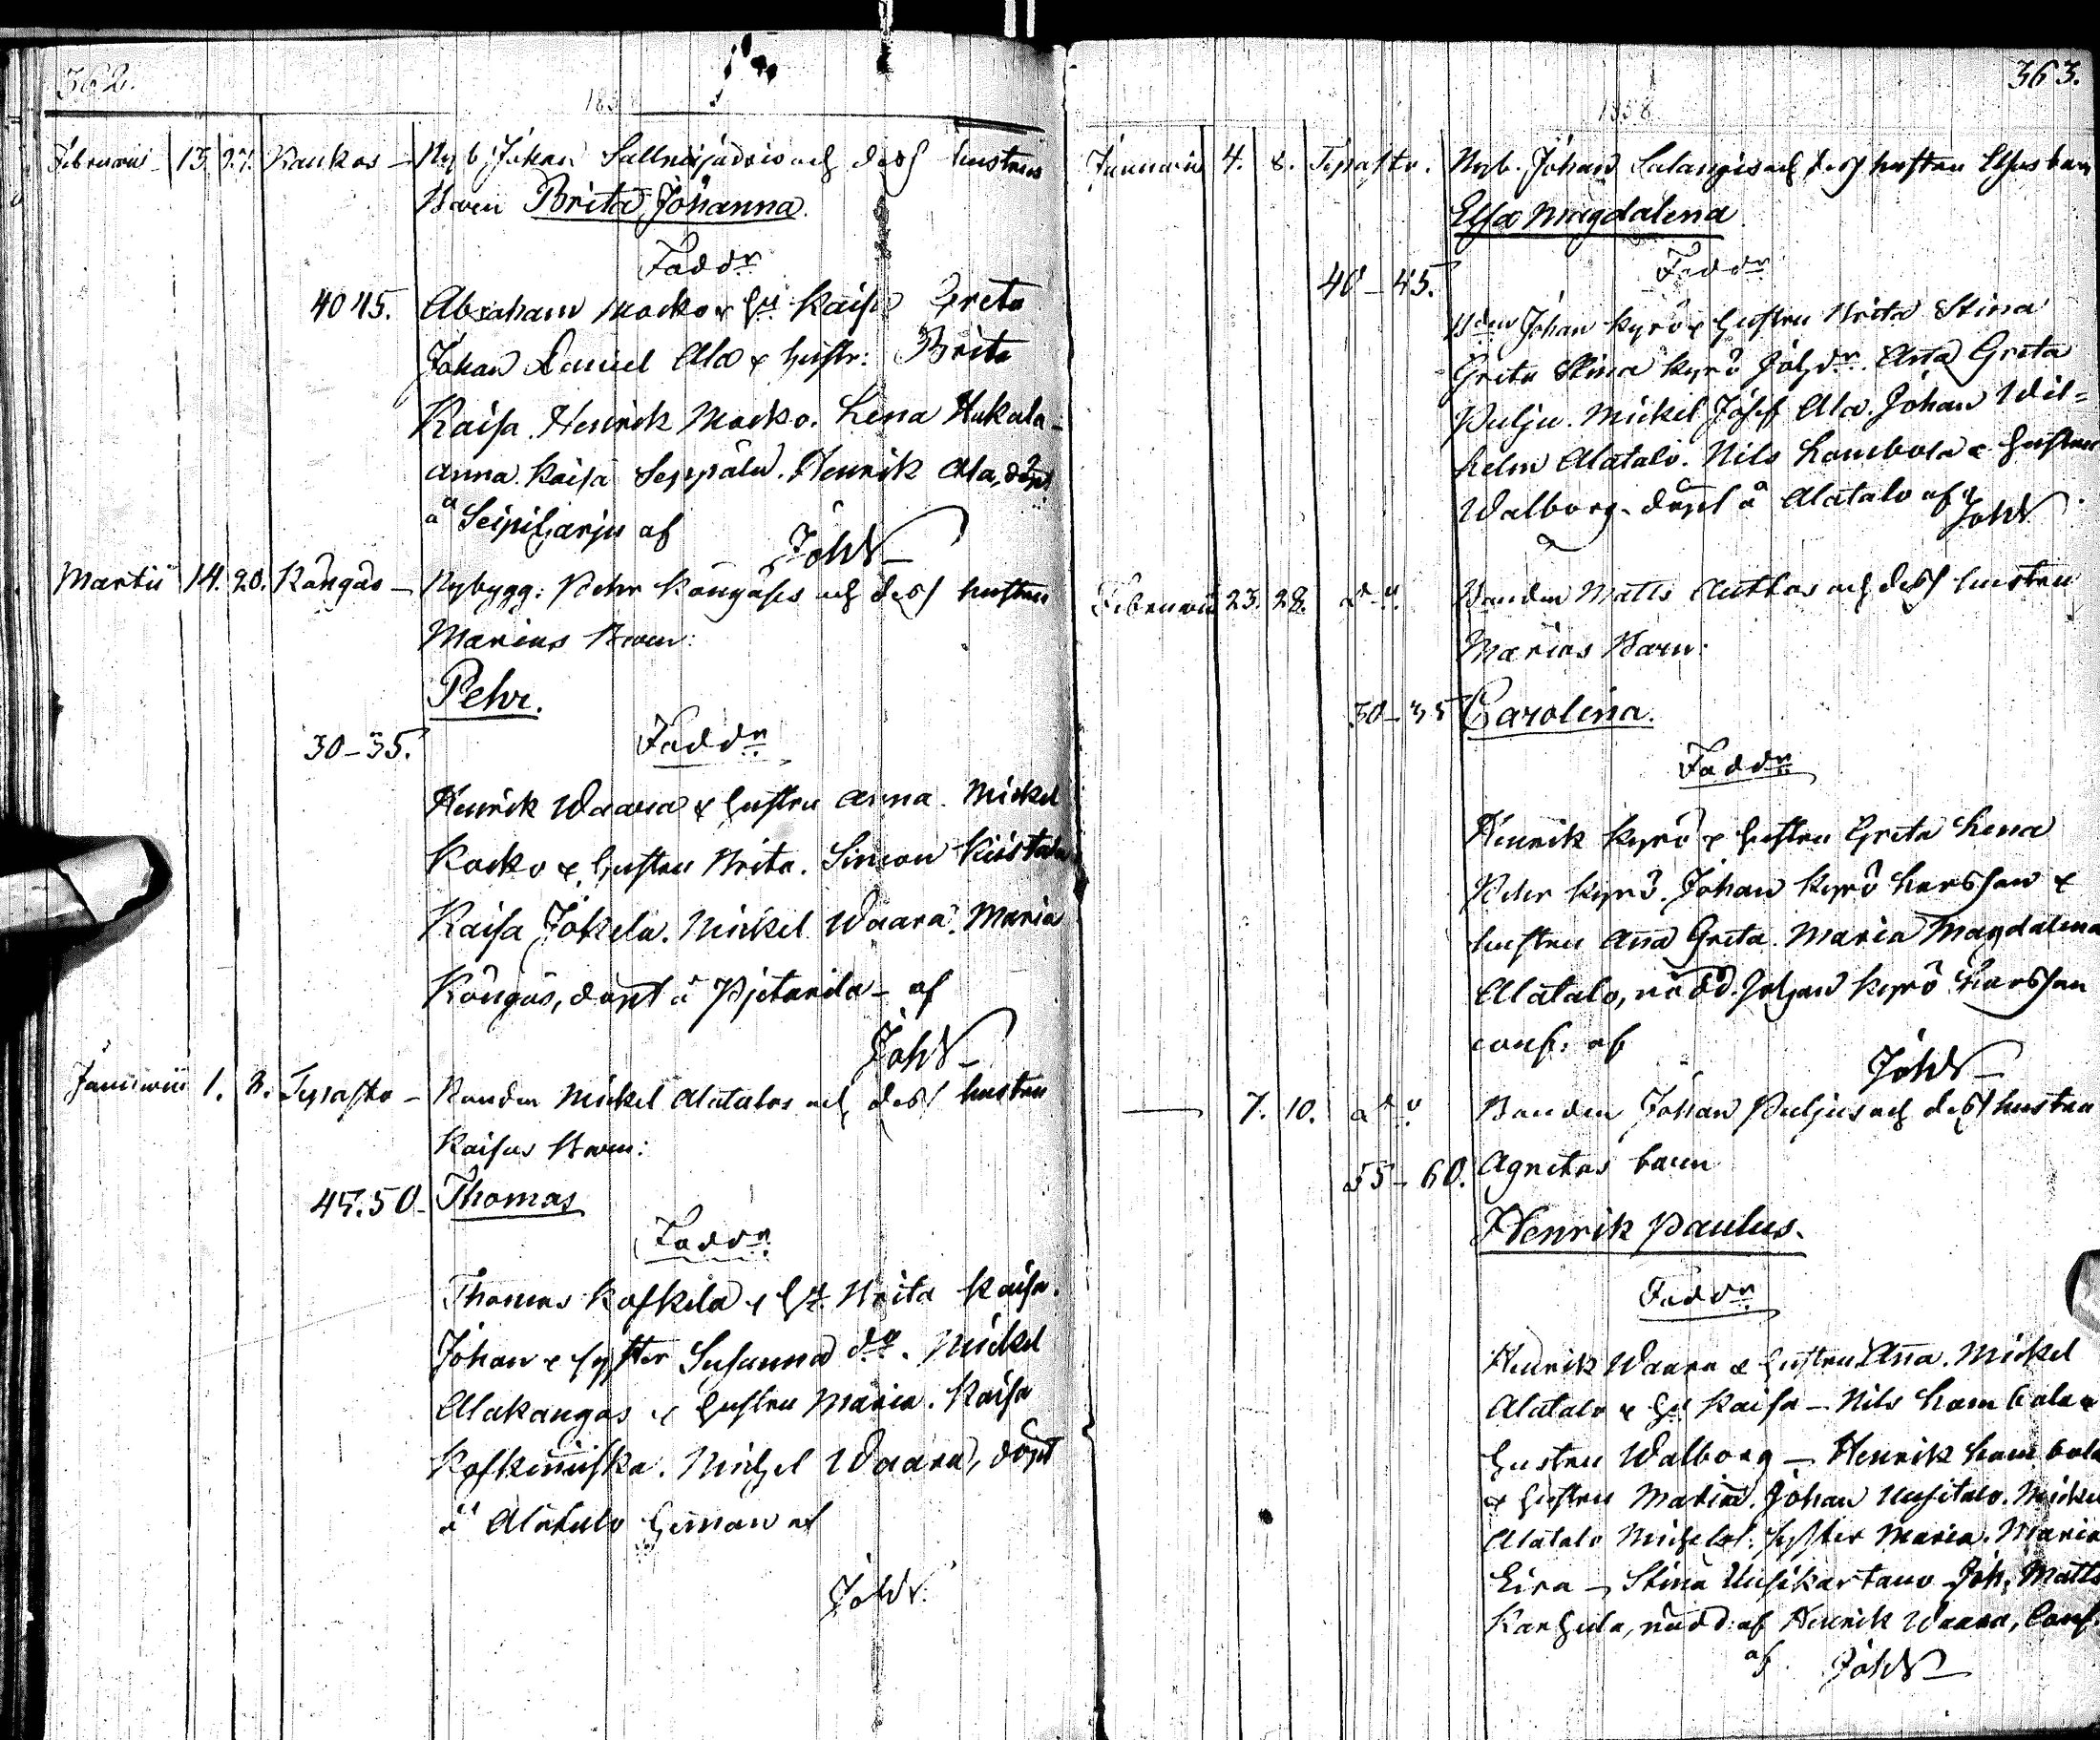 362.
185
Februarii 13. 27. Kaukos – Nyb. Johan Sallneijärwis och dess hustrus
Barn Brita Johanna.
Faddr
40 45. Abraham Mocko & hu Kaisa Greta
Johan Daniel Ala & hustr: Brita
Kaisa. Henrik Mocko. Lena Hukala –
Anna Kaisa Seppälä. Henrik Ala, döpt
å Seipiharju af
JohW
Martii 14. 20. Köngäs – Nybygg: Pehr Köngäses och dess hustru
Marias Barn:
Pehr.
30–35. Faddr
Henrik Waara & hustru Anna. Mickel
Kocko & hustru Brita. Simon Kiistala
Kaisa Jokela. Mickel Waara. Maria
Köngäs, döpt å Pjetarila – af
JohW
Januarii 1. 3. Tepasto – Bonden Mickel Alatalos och dess hustru
Kaisas Barn:
45.50 – Thomas
Faddr
Thomas Koskela & hu Brita Kaisa.
Johan & syster Susanna do. Mickel
Alakangas & hustru Maria. Kaisa
Koskenniska. Michel Waara, döpt
å Alatalo heman af
JohW
363.
1858
Januarii 4. 8. Tepasto. Nyb. Johan Salangis och dess hustru Elsas barn
Elsa Magdalena
Faddr
40–45.
Bdn Johan Kyrö & hustru Brita Stina
Greta Stina Kyrö Johdr. Anna Greta
Pulju. Mickel Josef Ala. Johan Wil=
helm Alatalo. Nils Lombola & hustru
Walborg – döpt å Alatalo af JohW
Februarii 23. 28. do Bonden Matts Auttos och dess hustru
Marias Barn:
30–35 Carolina.
Faddr
Henrik Kyrö & hustru Greta Lena
Pehr Kyrö. Johan Kyrö Larsson &
hustru Anna Greta. Maria Magdalena
Alatalo, nödd. Johan Kyrö Larsson
conf. af
JohW
— 7. 10. do Bonden Johan Puljus och dess hustru
55–60. Agnetas barn
Henrik Paulus.
Faddr
Henrik Waara & hustru Anna. Mickel
Alatalo & hu Kaisa – Nils Lombola &
hustru Walborg – Henrik Lombola
& hustru Maria. Johan Uusitalo. Mickel
Alatalo Michelss. syster Maria. Maria
Eira – Stina Uusikartano – Joh. Matts
Karhula, nödd. af Henrik Waara, Conf.
af JohW